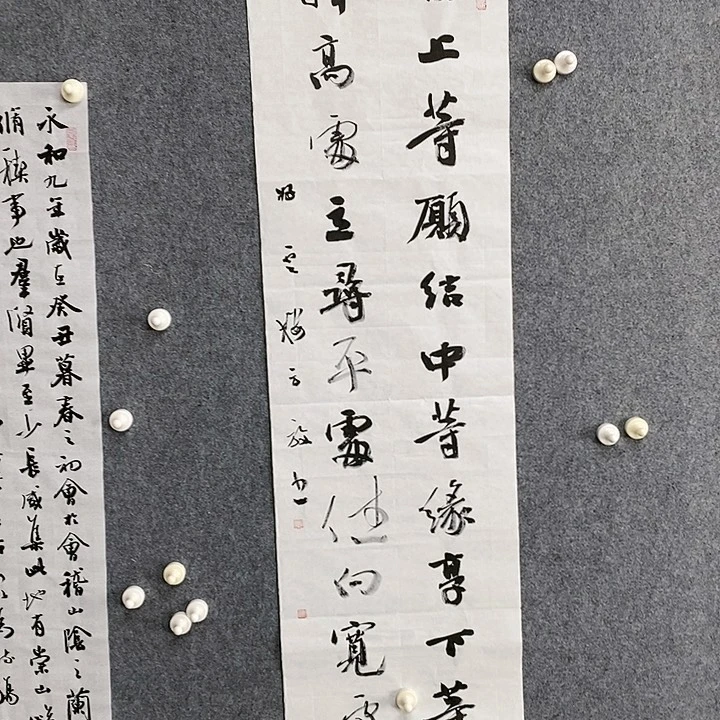 上等願結中等緣享下等
高處立尋平處住向寬處
永和九年歲在癸丑暮春之初會於會稽山陰之蘭
脩禊事也羣賢畢至少長咸集此地有崇山